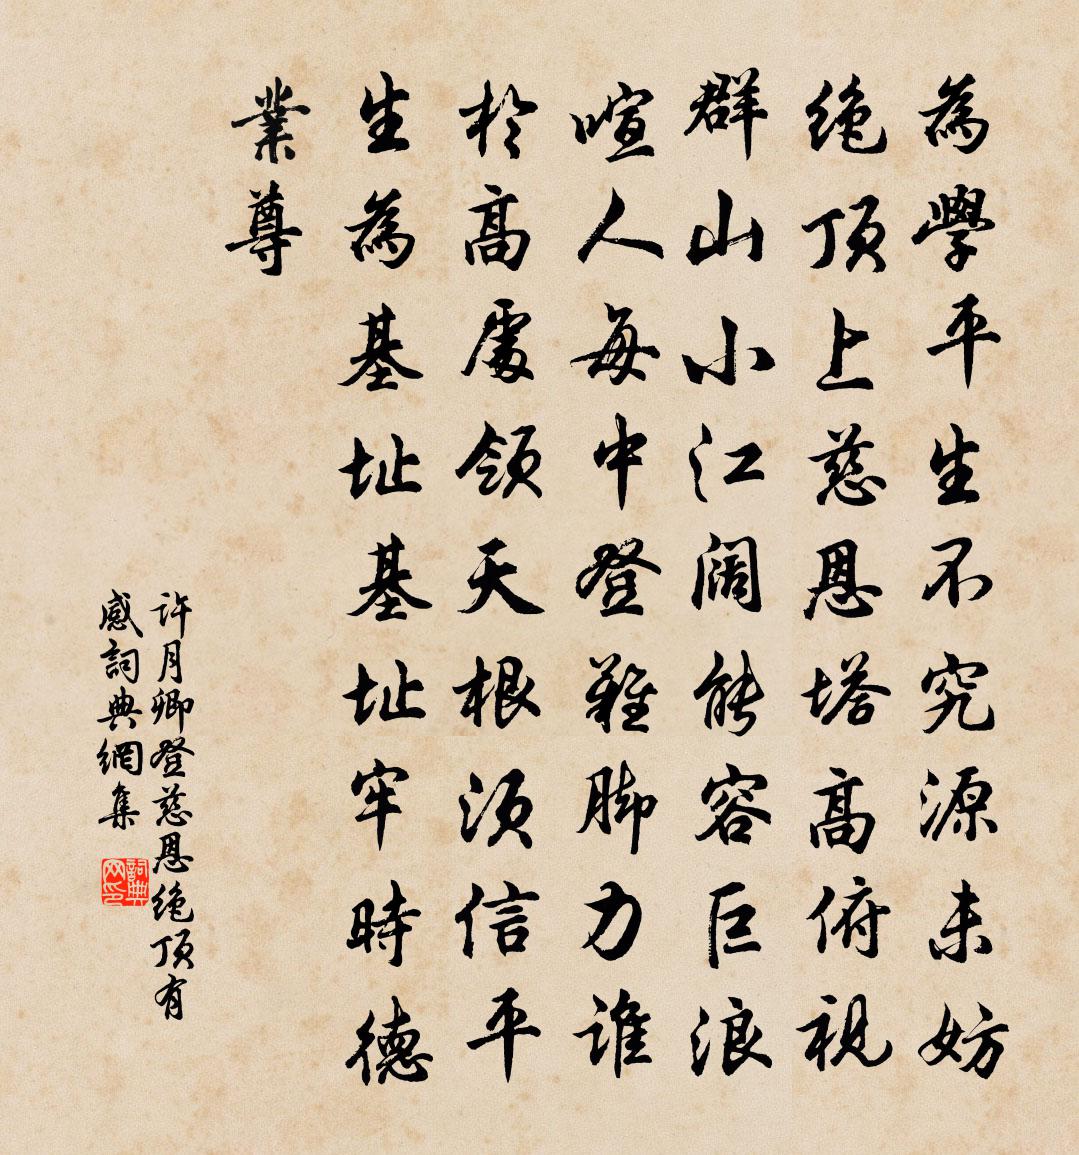 為學平生不究源未妨
绝顶上慈恩塔高俯視
群山小江阔能容巨浪
喧人每中登難脚力谁
於高處领天根须信平
生為基址基址牢時德
業尊
许月卿登慈恩绝顶有
感詞典網集
詞典
网印